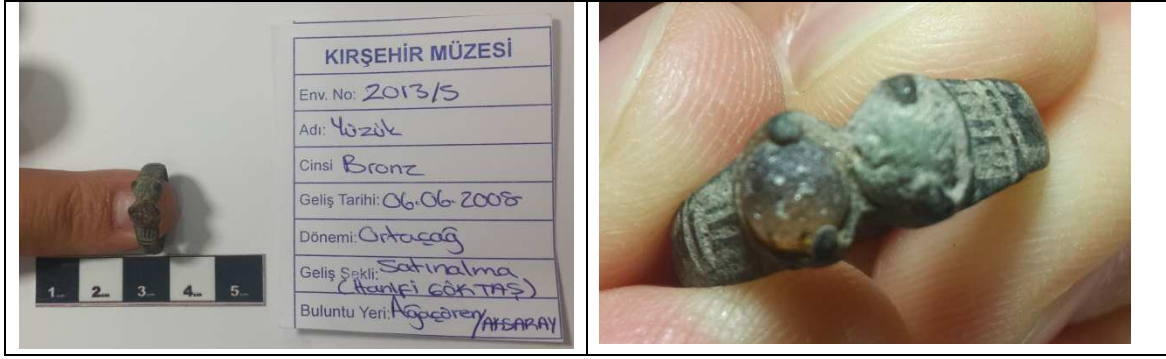 KIRŞEHİR MÜZESİ
Env. No: 2013/5
Adı: Yüzük
Cinsi Bronz
Geliş Tarihi: 06.06.2008
Dönemi: Ortaçağ
Geliş Şekli: Satınalma
(Hanifi GÖKTAŞ)
Buluntu Yeri: Ağaçören/AKSARAY
1 2 3 4 5